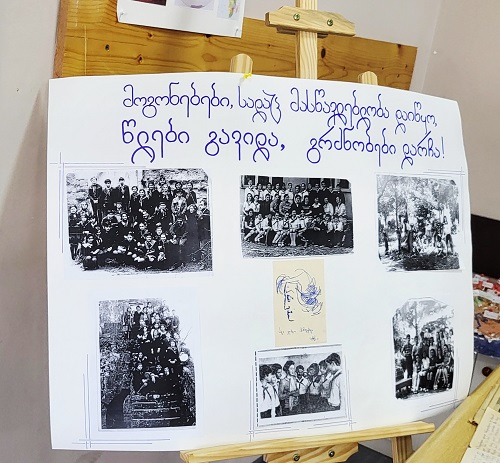 მოგონებები, სადაც მასწავლებლობა დაიწყო,
წლები გავიდა, გრძნობები დარჩა!